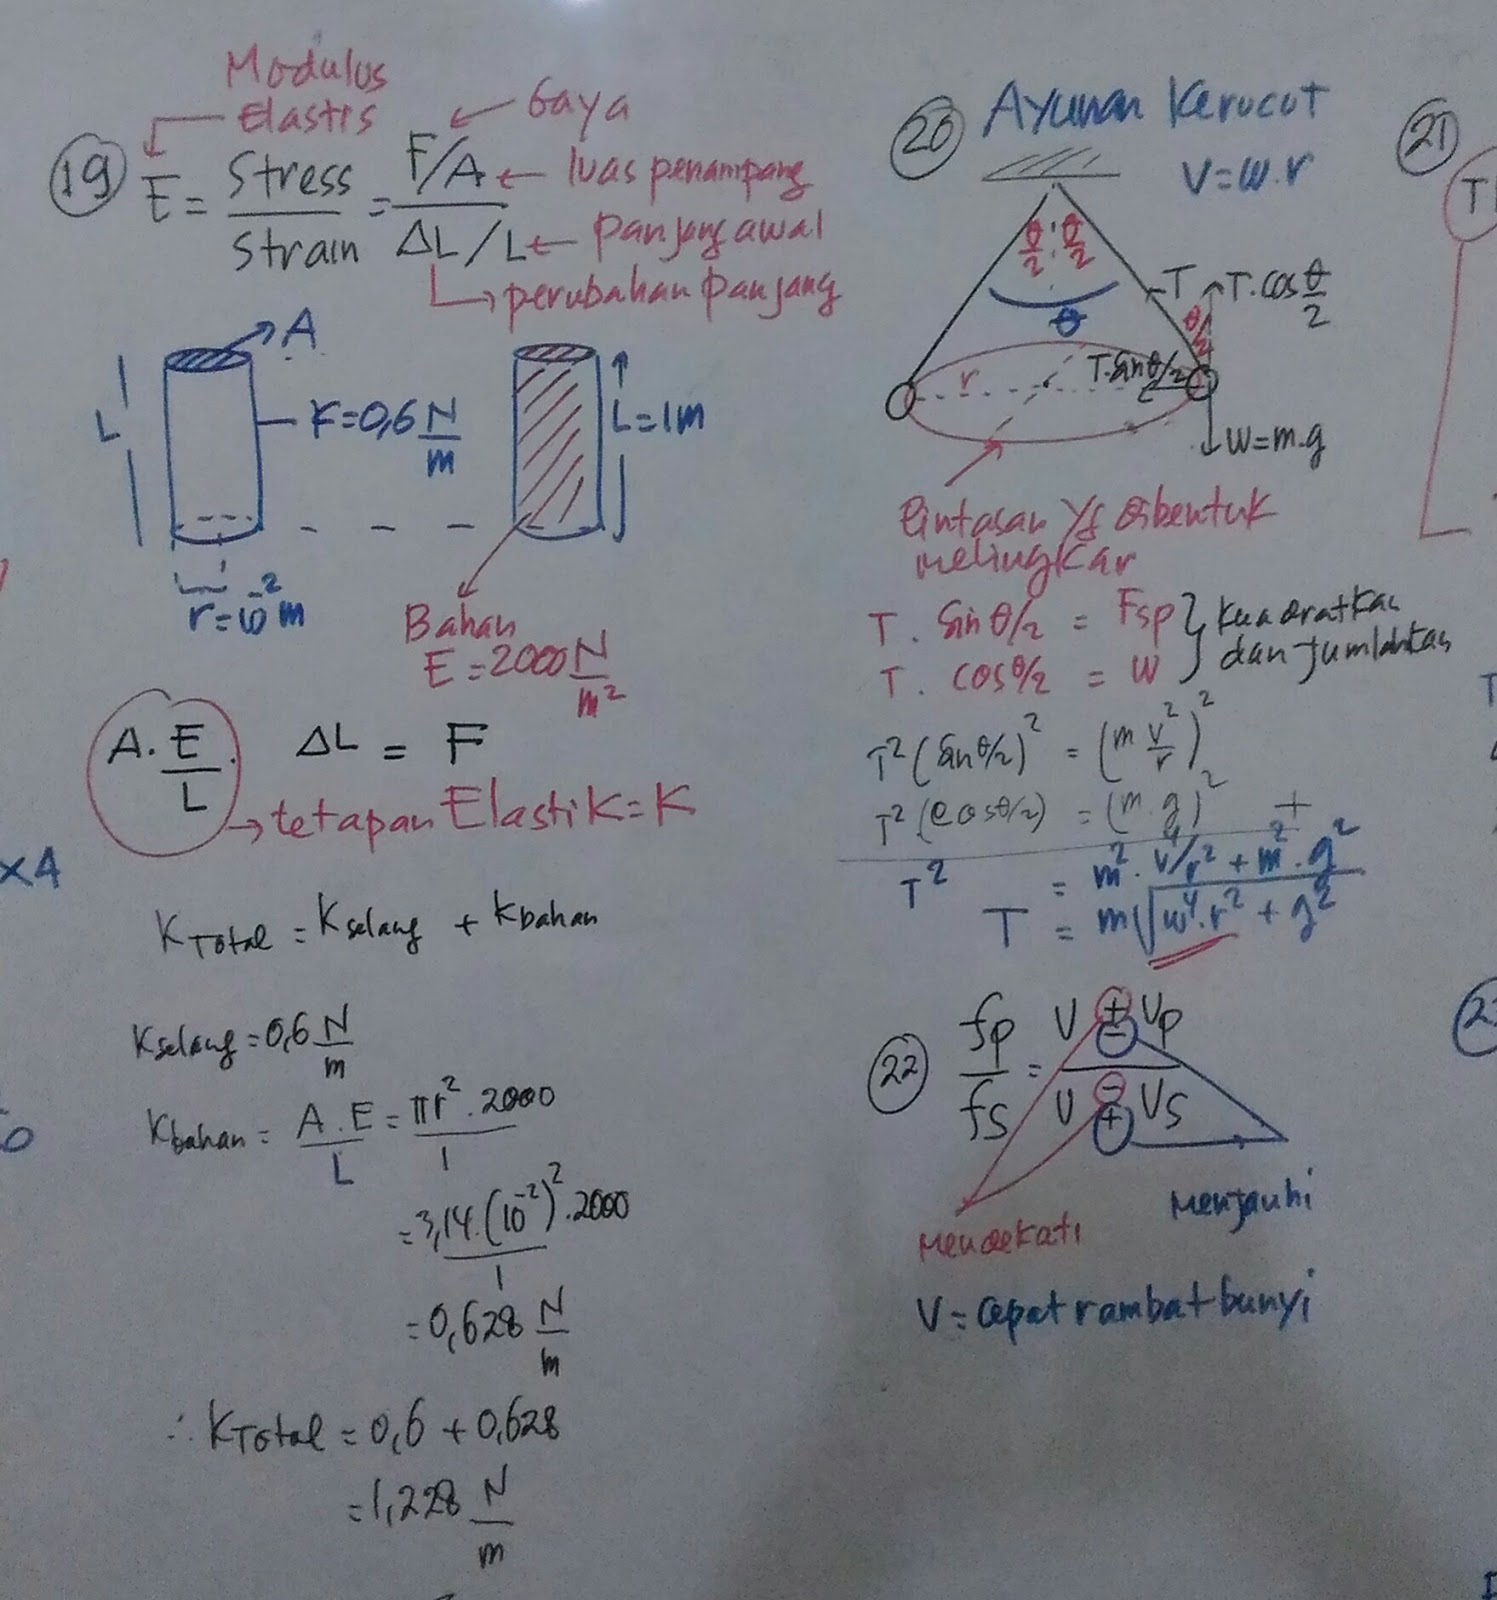 Modulus
Elastis
Gaya
19 E = Stress / Strain = F/A / ΔL/L
luas penampang
panjang awal
perubahan panjang
A
L
K=0,6 N/m
L=1m
r=10⁻²m
Bahan
E=2000 N/m²
A.E/L . ΔL = F
tetapan Elastik=K
x4
K Total = K selang + K bahan
K selang = 0,6 N/m
K bahan = A.E/L = πr².2000/1
= 3,14.(10⁻²)².2000/1
= 0,628 N/m
∴ K Total = 0,6 + 0,628
= 1,228 N/m
20 Ayunan Kerucut
V=w.r
θ/2 θ/2
θ
T
T.cos θ/2
θ/2
r
T.sin θ/2
W=m.g
lintasan yg dibentuk
melingkar
T. sin θ/2 = Fsp
T. cos θ/2 = W
kuadratkan
dan jumlahkan
T²(sin θ/2)² = (m v²/r)²
T²(cos θ/2) = (m.g)² +
T² = m².v⁴/r² + m².g²
T = m√w⁴.r² + g²
22 fp/fs = V ± Vp / V ∓ Vs
Mendekati
Menjauhi
V= cepat rambat bunyi
21
T